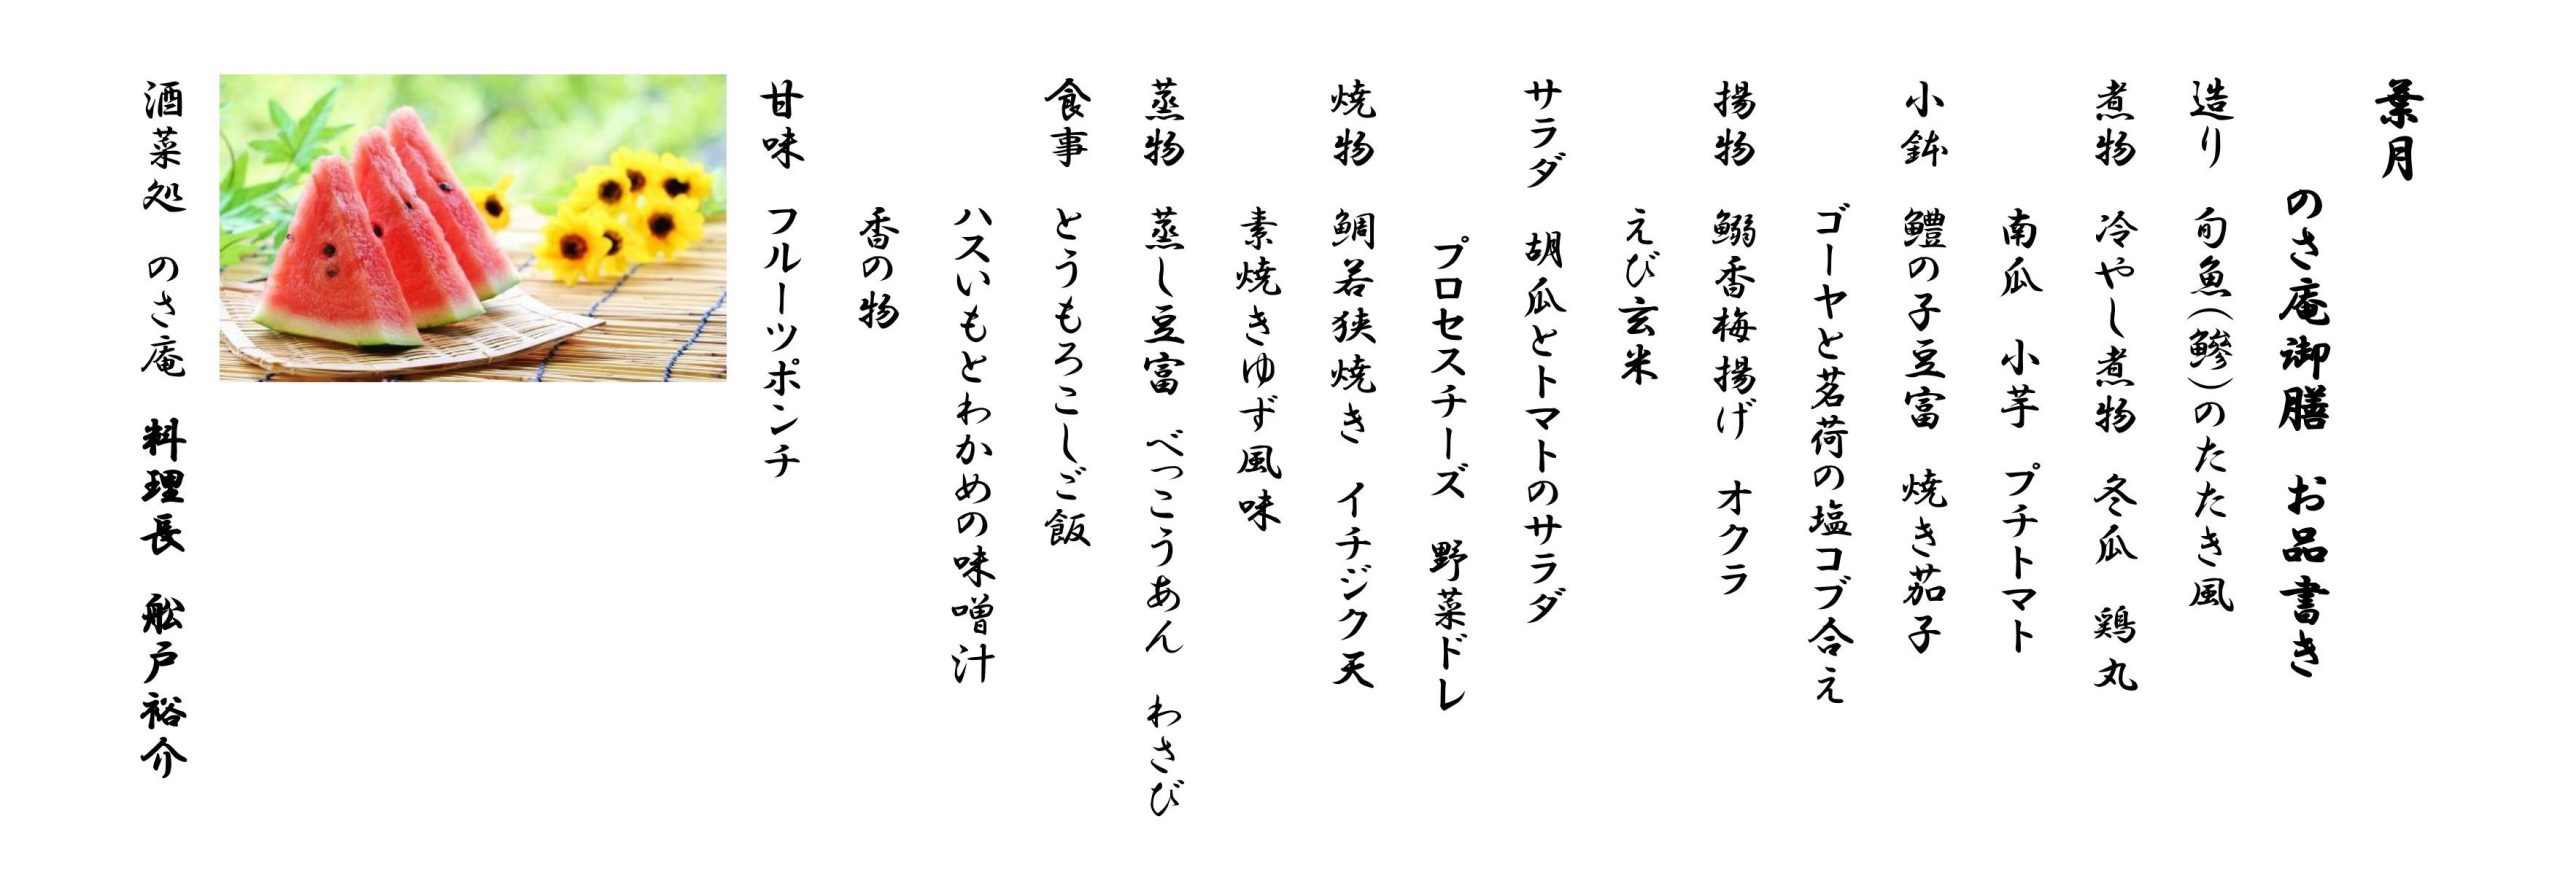 葉月
のさ庵御膳　お品書き
造り　旬魚(鰺)のたたき風
煮物　冷やし煮物　冬瓜　鶏丸
南瓜　小芋　プチトマト
小鉢　鱧の子豆富　焼き茄子
ゴーヤと茗荷の塩コブ合え
揚物　鰯香梅揚げ　オクラ
えび玄米
サラダ　胡瓜とトマトのサラダ
プロセスチーズ　野菜ドレ
焼物　鯛若狭焼き　イチジク天
素焼きゆず風味
蒸物　蒸し豆富　べっこうあん　わさび
食事　とうもろこしご飯
ハスいもとわかめの味噌汁
香の物
甘味　フルーツポンチ
酒菜処　のさ庵　料理長　舩戸裕介